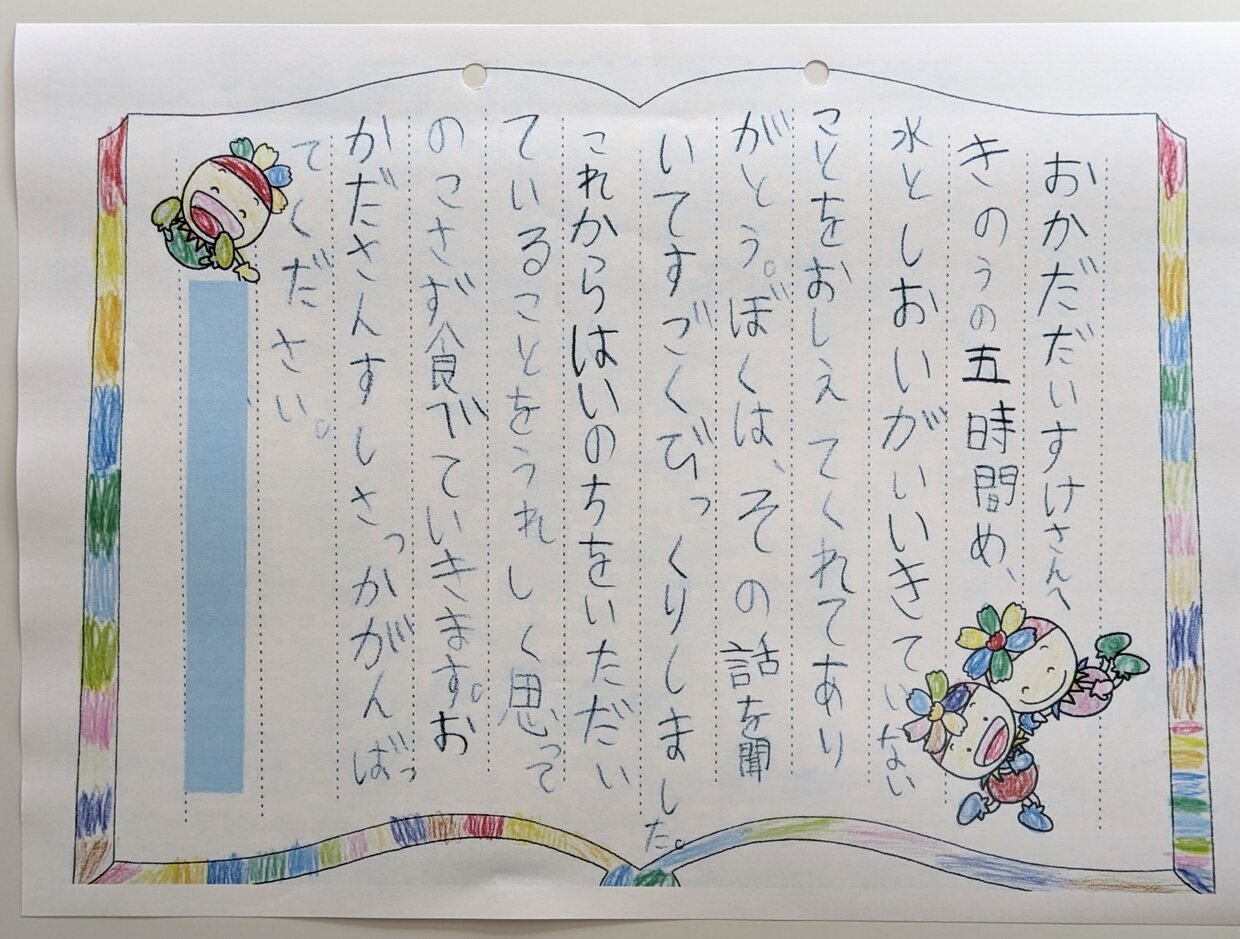 おかだだいすけさんへ
きのうの五時間め、
水としおいがいいきていない
ことをおしえてくれてあり
がとう。ぼくは、その話を聞
いてすごくびっくりしました。
これからはいのちをいただい
ていることをうれしく思って
のこさず食べていきます。お
かださんすしさっかがんばっ
てください。